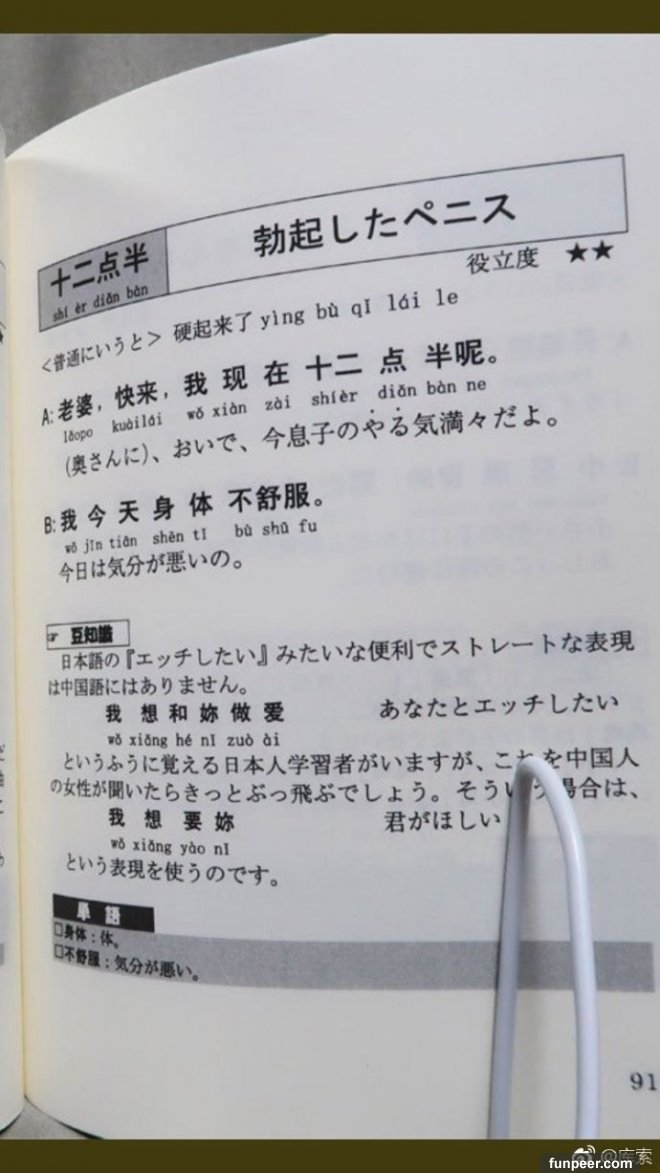 十二点半
shí èr diǎn bàn
勃起したペニス
役立度 ★★
<普通にいうと> 硬起来了 yìng bù qǐ lái le
A: 老婆，快来，我现在十二点半呢。
lǎopo kuàilái wǒ xiàn zài shíèr diǎn bàn ne
(奥さんに)、おいで、今息子のやる気満々だよ。
B: 我今天身体不舒服。
wǒ jīn tiān shēn tǐ bù shū fu
今日は気分が悪いの。
☞ 豆知識
日本語の『エッチしたい』みたいな便利でストレートな表現
は中国語にはありません。
我想和妳做爱 あなたとエッチしたい
wǒ xiǎng hé nǐ zuò ài
というふうに覚える日本人学習者がいますが、これを中国人
の女性が聞いたらきっとぶっ飛ぶでしょう。そういう場合は、
我想要妳 君がほしい
wǒ xiǎng yào nǐ
という表現を使うのです。
単語
□身体：体。
□不舒服：気分が悪い。
91
@库索
funpeer.com